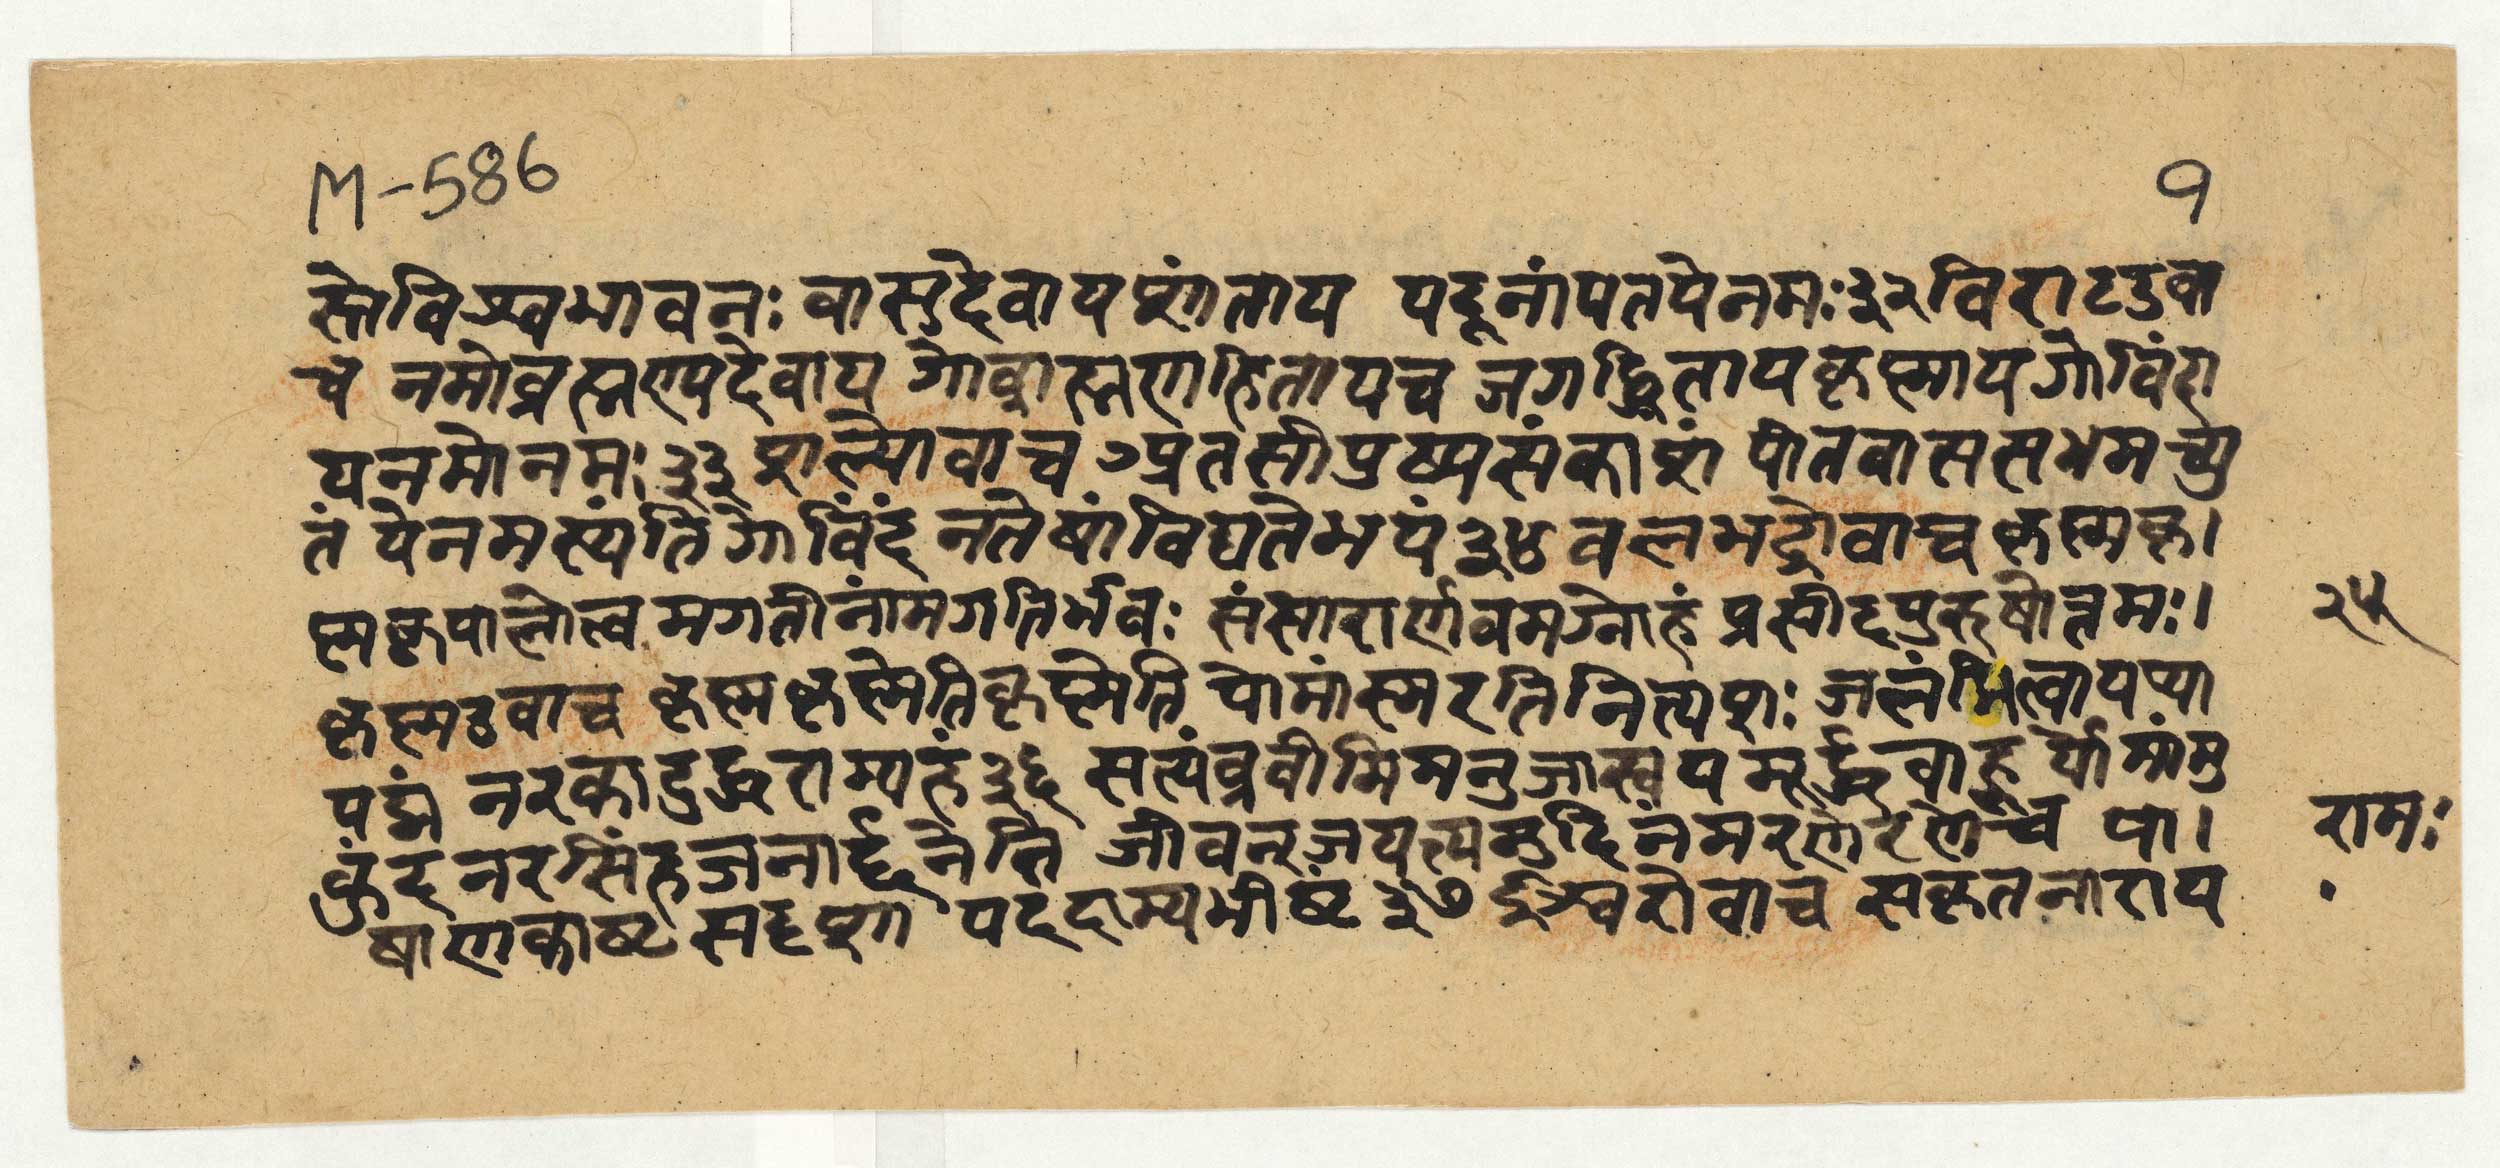 M-586
१
स्तोविश्वभावनः वासुदेवायशांताय यदूनांपतयेनमः ३२ विराटउवा
च नमोब्रह्मण्यदेवाय गोब्राह्मणहितायच जगद्धितायकृष्णायगोविंदा
यनमोनमः ३३ शल्योवाच अतसीपुष्पसंकाशं पीतवाससमच्यु
तं येनमस्यंतिगोविंदं नतेषांविद्यतेभयं ३४ वलभद्रोवाच कृष्णकृ।
ष्णकृपालोत्वमगतीनांमगतिर्भवः संसारार्णवमग्नोहं प्रसीदपुरुषोत्तमः।
२५
कृष्णउवाच कृष्णकृष्णेतिकृष्णेति योमांस्मरतिनित्यशः जलंभित्वायथा
पद्मं नरकादुद्धराम्यहं ३६ सत्यंब्रवीमिमनुजास्वयमूर्द्ध्ववाहूर्योमांमु
कुंदनरसिंहजनार्द्दनेति जीवन्जयत्यनुदिनंमरणेरणेच पा।
रामः
षाणकाष्टसदृशाय ददाम्यभीष्टं ३७ ईश्वरोवाच सकृतनाराय